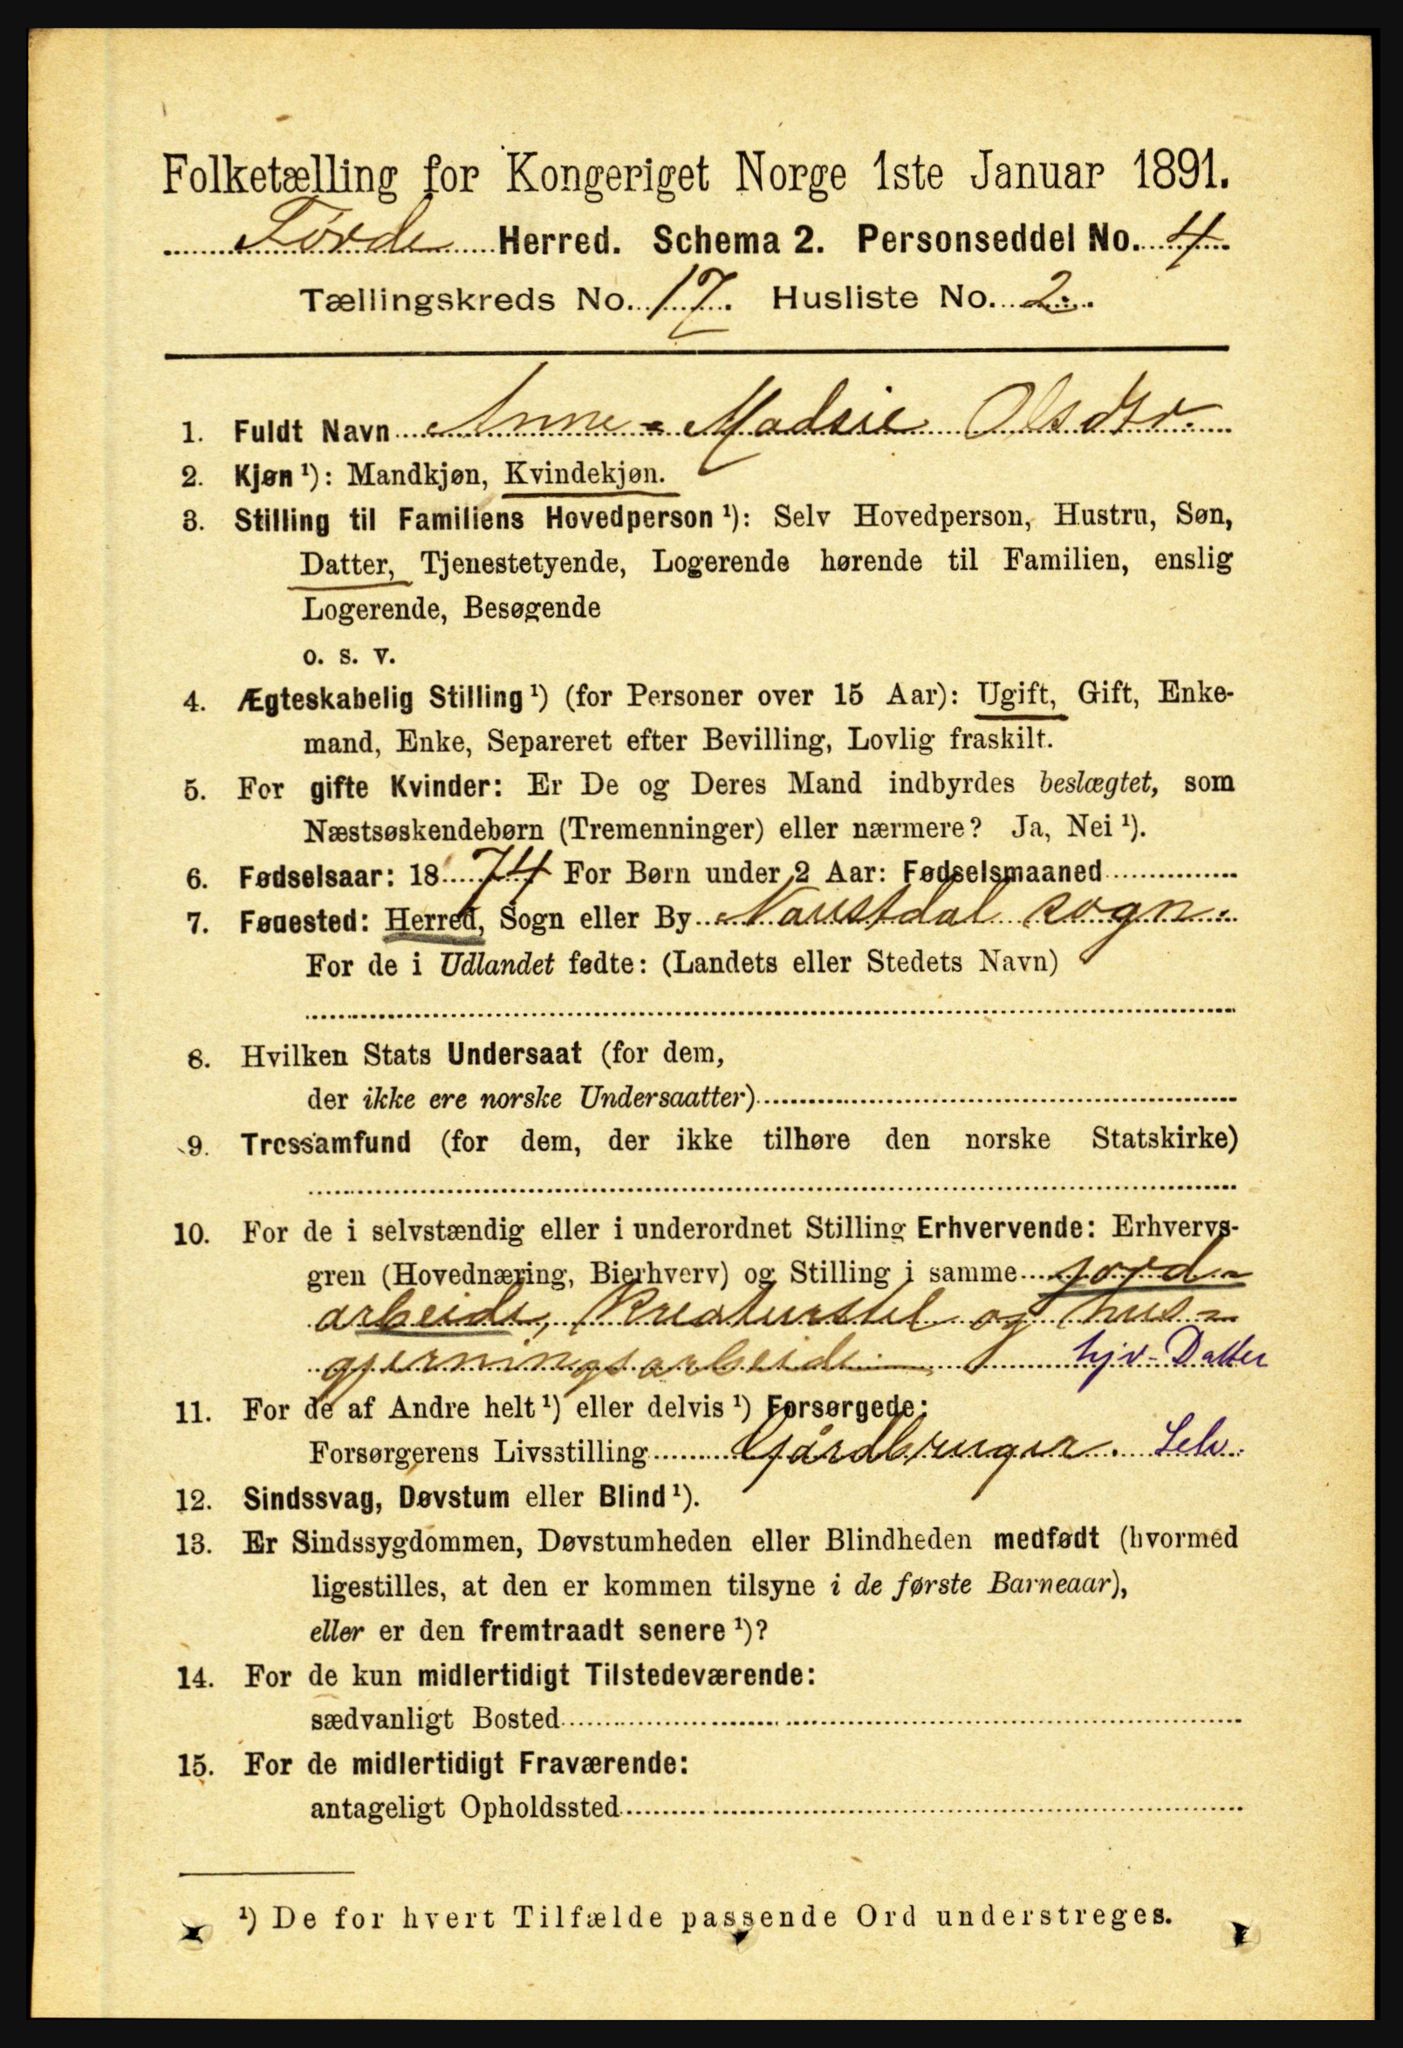 Folketælling for Kongeriget Norge 1ste Januar 1891.
Førde Herred. Schema 2. Personseddel No. 4
Tællingskreds No. 17. Husliste No. 2.
1. Fuldt Navn Anne Madsie Olsdtr.
2. Kjøn¹): Mandkjøn, Kvindekjøn.
3. Stilling til Familiens Hovedperson¹): Selv Hovedperson, Hustru, Søn,
Datter, Tjenestetyende, Logerende hørende til Familien, enslig
Logerende, Besøgende
o. s. v.
4. Ægteskabelig Stilling¹) (for Personer over 15 Aar): Ugift, Gift, Enke-
mand, Enke, Separeret efter Bevilling, Lovlig fraskilt.
5. For gifte Kvinder: Er De og Deres Mand indbyrdes beslægtet, som
Næstsøskendebørn (Tremenninger) eller nærmere? Ja, Nei¹).
6. Fødselsaar: 1874 For Børn under 2 Aar: Fødselsmaaned
7. Fødested: Herred, Sogn eller By Naustdal sogn.
For de i Udlandet fødte: (Landets eller Stedets Navn)
8. Hvilken Stats Undersaat (for dem,
der ikke ere norske Undersaatter)
9. Trossamfund (for dem, der ikke tilhøre den norske Statskirke)
10. For de i selvstændig eller i underordnet Stilling Erhvervende: Erhvervs-
gren (Hovednæring, Bierhverv) og Stilling i samme jord-
arbeide, Kreaturstel og hus-
gjerningsarbeide hjv- Datter
11. For de af Andre helt¹) eller delvis¹) Forsørgede:
Forsørgerens Livsstilling Gårdbruger. Selv.
12. Sindssvag, Døvstum eller Blind¹).
13. Er Sindssygdommen, Døvstumheden eller Blindheden medfødt (hvormed
ligestilles, at den er kommen tilsyne i de første Barneaar),
eller er den fremtraadt senere¹)?
14. For de kun midlertidigt Tilstedeværende:
sædvanligt Bosted
15. For de midlertidigt Fraværende:
antageligt Opholdssted
¹) De for hvert Tilfælde passende Ord understreges.